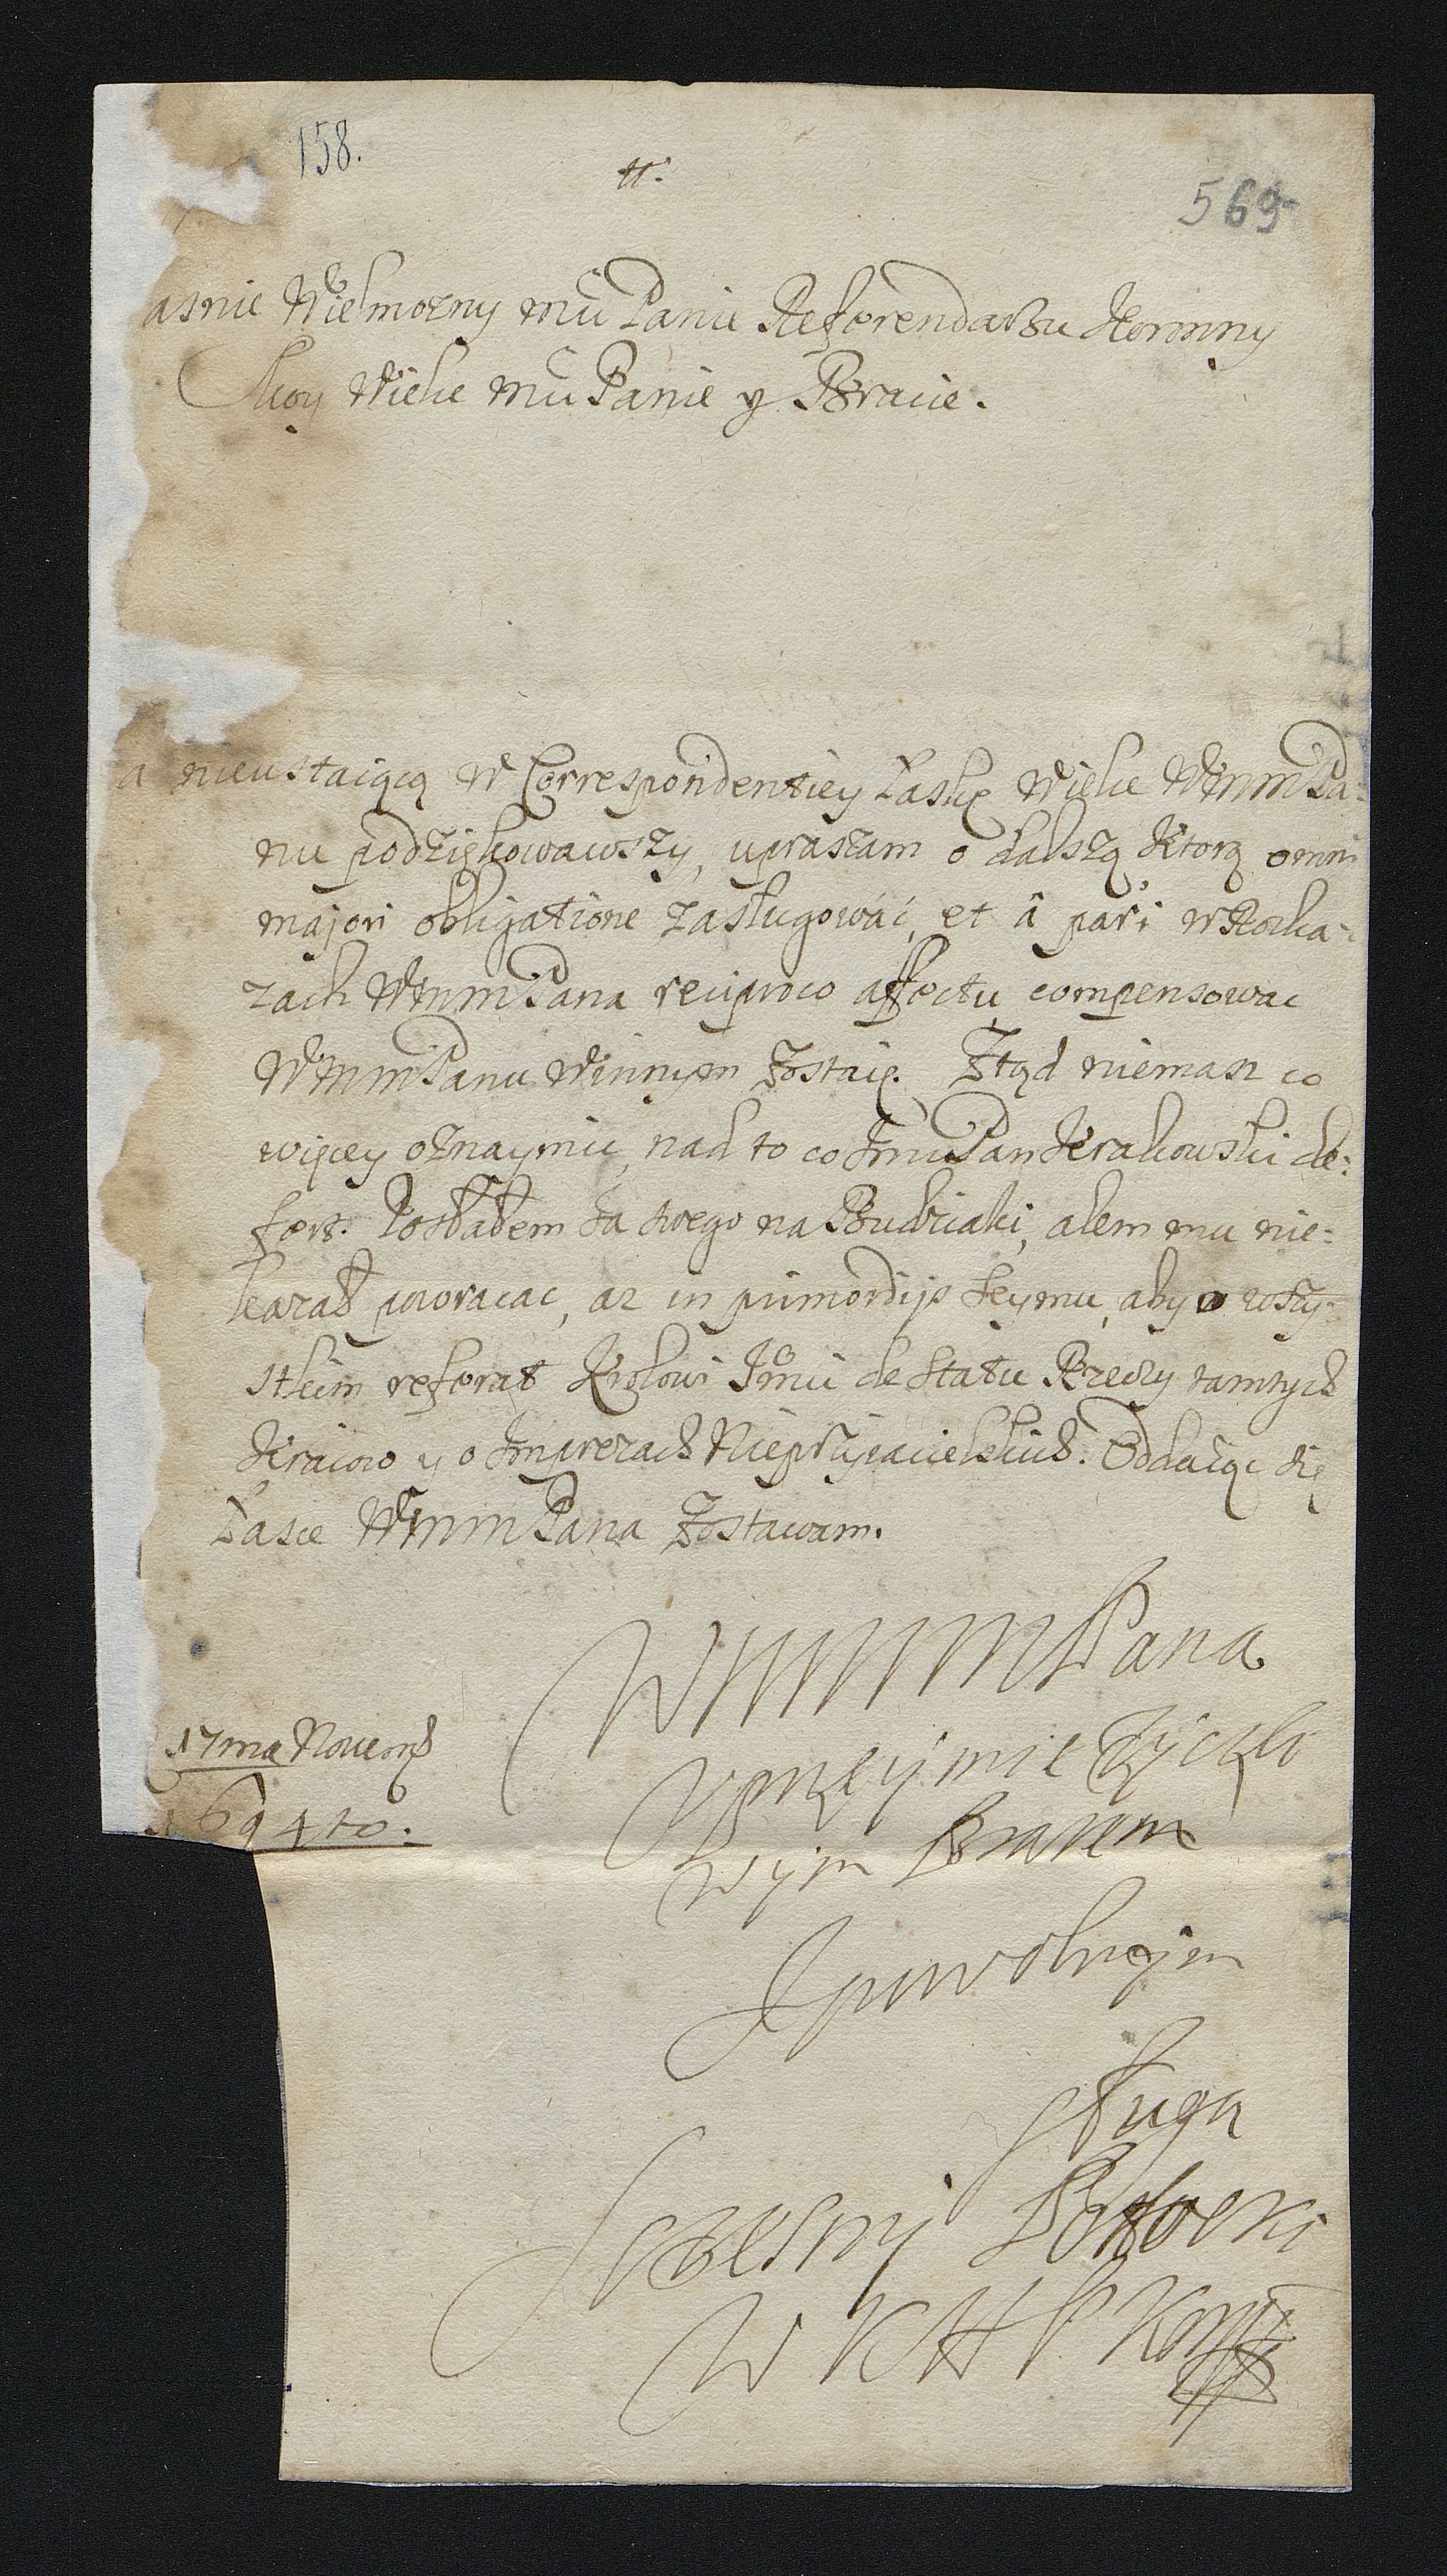 158.
tt.
569
asnie Wielmozny mu Panie Referendarzu Koronny
Moy Wielce mu Panie y Bracie.
a nieustaiącą w Correspondentiey Łaskę Wielce WmmPa:
nu podziękowawszy, upraszam o dalszą Ktorą omni
majori obligatione zasługować, et â pari w Rozka:
zach WmmPana reciproco affectu compensowac
WmmPanu winnym zostaię. Ztąd niemasz co
więcey oznaymic, nad to co JmuPan Krakowski de:
fert. Posłałem ia swego na Budziaki, alem mu nie:
kazał powracac, az in primordijs Seymu, aby o wszy:
stkim referat Krolowi Jmci de Statu Rzeczy tamtych
Kraiow y o Imprezach Nieprzyiacielskich. Oddaiąc się
Łasce WmmPana zostawam.
WmmmPana
Uprzeymie Zyczli
wym Bratem
17ma Novemb
1694to.
J powolnym
sługą
Sczesny Potocki
W K H P Kor